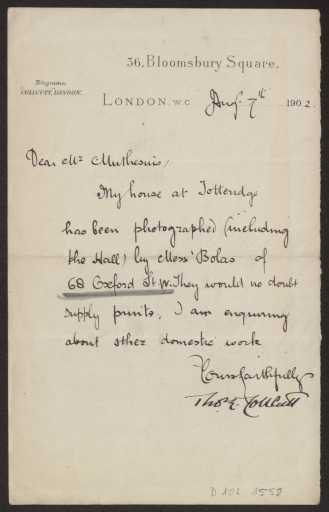 36, Bloomsbury Square.
Telegrams
"COLLCUTT, LONDON."
LONDON. W.C. Aug. 7th 1902.
Dear Mr Muthesius,
My house at Totteridge
has been photographed (including
the Hall) by Messrs Bolas of
68 Oxford St W. They would no doubt
supply prints. I am enquiring
about other domestic work
Yours faithfully
Thos. E. Collcutt
D 102 - 1552